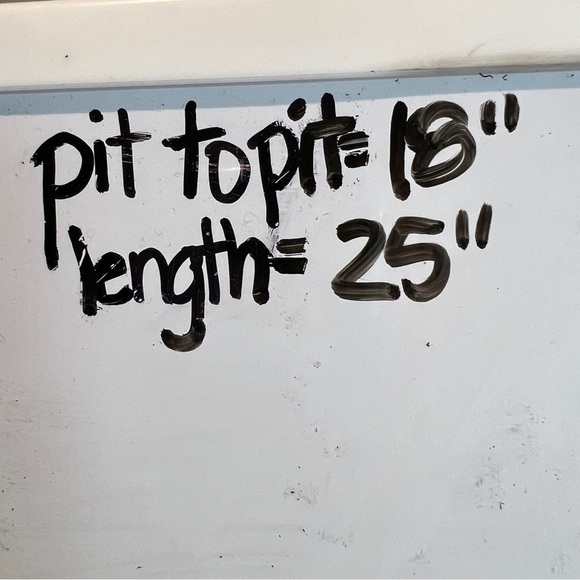 pit to pit= 18"
length= 25"